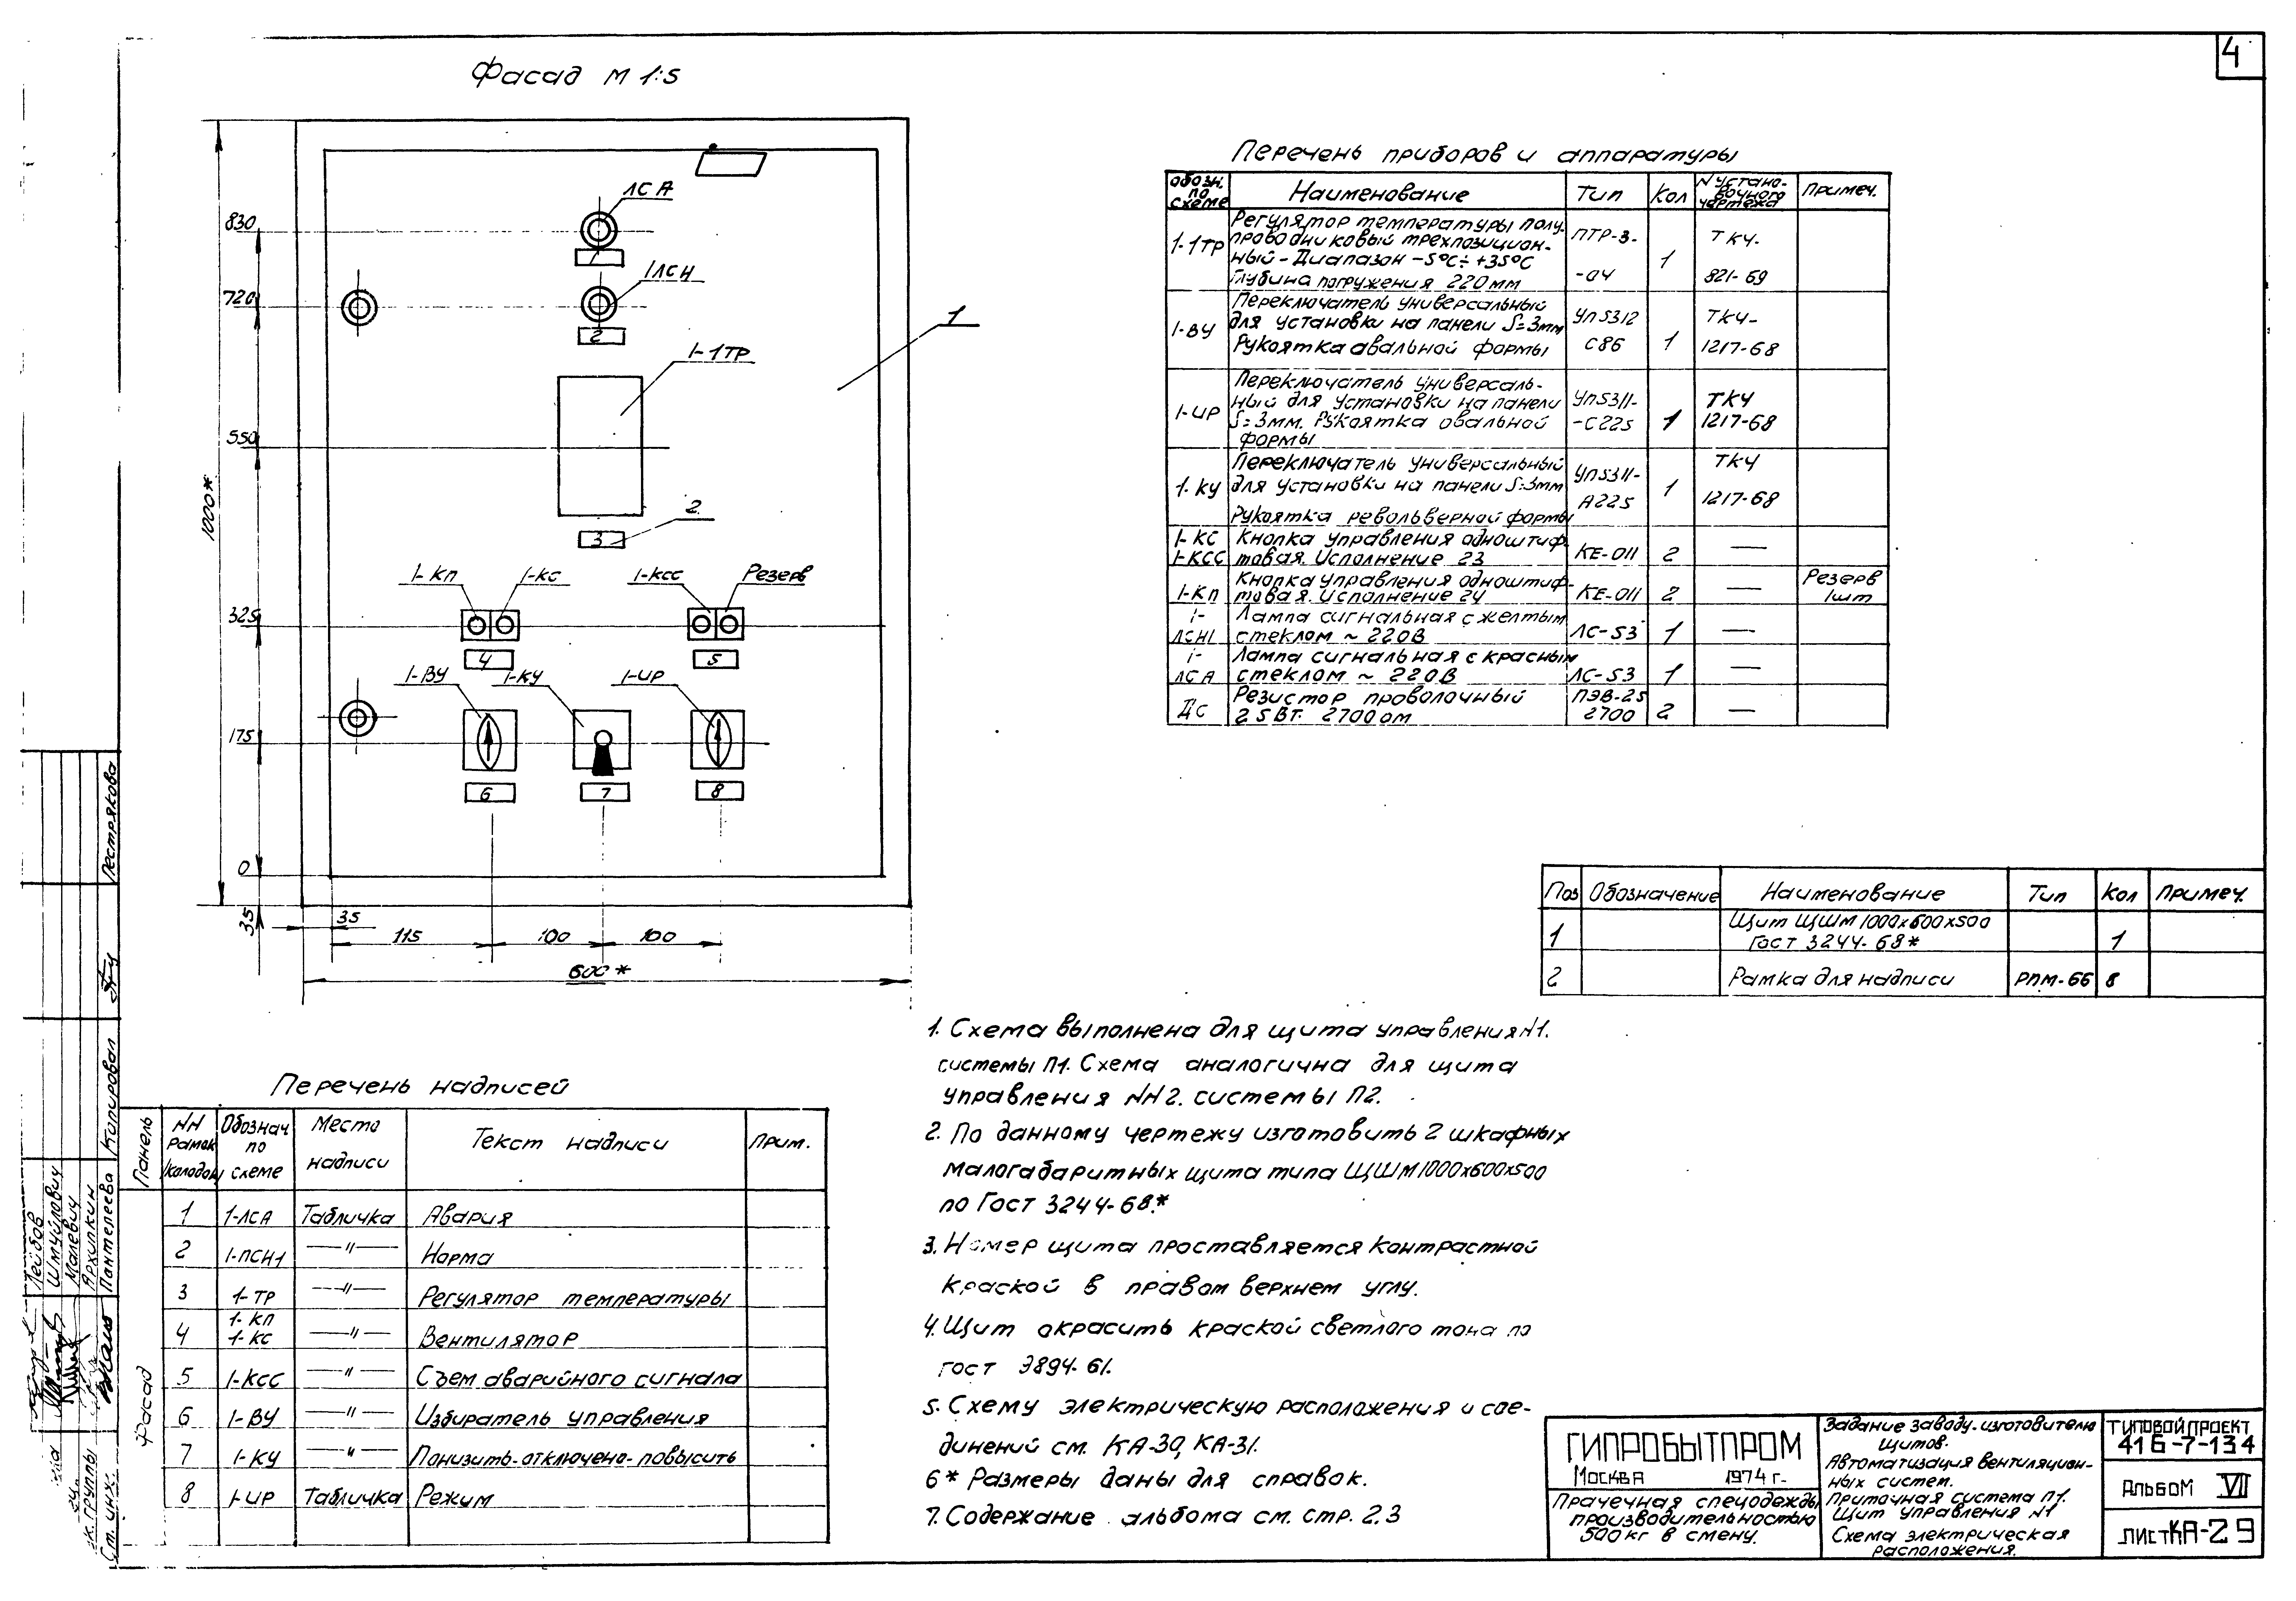 4
Фасад М 1:5
ЛСА
1
1ЛСН
2
1-1ТР
1
2
3
1-КП
1-КС
1-КСС
Резерв
4
5
1-ВУ
1-КУ
1-ИР
6
7
8
830
720
550
325
175
0
1000*
35
35
115
100
100
600*
Перечень приборов и аппаратуры
Обозн. по схеме
Наименование
Тип
Кол
N устано-вочного чертежа
Примеч.
1-1ТР
Регулятор температуры полу-
проводниковый трехпозицион-
ный - Диапазон -5°С÷+35°С
Глубина погружения 220мм
ПТР-3-
-04
1
ТКЧ-
821-69
1-ВУ
Переключатель универсальный
для установки на панели S=3мм
Рукоятка овальной формы
УП5312
С86
1
ТКЧ-
1217-68
1-ИР
Переключатель универсаль-
ный для установки на панели
S=3мм. Рукоятка овальной
формы
УП5311-
-С225
1
ТКЧ
1217-68
1-КУ
Переключатель универсальный
для установки на панели S=3мм
Рукоятка револьверной формы
УП5311-
А225
1
ТКЧ
1217-68
1-КС
1-КСС
Кнопка управления одноштиф-
товая. Исполнение 23
КЕ-011
2
—
1-КП
Кнопка управления одноштиф-
товая. Исполнение 24
КЕ-011
2
—
Резерв
1шт
1-
ЛСН1
Лампа сигнальная с желтым
стеклом ~ 220В
ЛС-53
1
—
1-
ЛСА
Лампа сигнальная с красным
стеклом ~ 220В
ЛС-53
1
—
ДС
Резистор проволочный
25Вт. 2700ом
ПЭВ-25
2700
2
—
Поз
Обозначение
Наименование
Тип
Кол
Примеч.
1
Щит ЩШМ 1000х600х500
Гост 3244-68*
1
2
Рамка для надписи
РПМ-66
8
1. Схема выполнена для щита управления N1.
системы П1. Схема аналогична для щита
управления NN2. системы П2.
2. По данному чертежу изготовить 2 шкафных
малогабаритных щита типа ЩШМ1000х600х500
по Гост 3244-68.*
3. Номер щита проставляется контрастной
краской в правом верхнем углу.
4. Щит окрасить краской светлого тона по
гост Э894-61.
5. Схему электрическую расположения и сое-
динений см. КА-30, КА-31.
6* Размеры даны для справок.
7. Содержание альбома см. стр. 2,3
Перечень надписей
Панель
NN
рамок
/колодок/
Обознач
по
схеме
Место
надписи
Текст надписи
Прим.
Фасад
1
1-ЛСА
Табличка
Авария
2
1-ПСН1
—"—
Норма
3
1-ТР
—"—
Регулятор температуры
4
1-КП
1-КС
—"—
Вентилятор
5
1-КСС
—"—
Съем аварийного сигнала
6
1-ВУ
—"—
Избиратель управления
7
1-КУ
—"—
Понизить-отключено-повысить
8
1-ИР
Табличка
Режим
ГИПРОБЫТПРОМ
Москва 1974 г.
Прачечная спецодежды
производительностью
500кг в смену.
Задание заводу-изготовителю
щитов.
Автоматизация вентиляцион-
ных систем.
Приточная система П1.
Щит управления N1
Схема электрическая
расположения.
ТИПОВОЙ ПРОЕКТ
416-7-134
Альбом VII
Лист КА-29
Пестрякова
Копировал
Лейбов
Шмуйлович
Малевич
Архипкин
Пантелеева
Ст. инж.